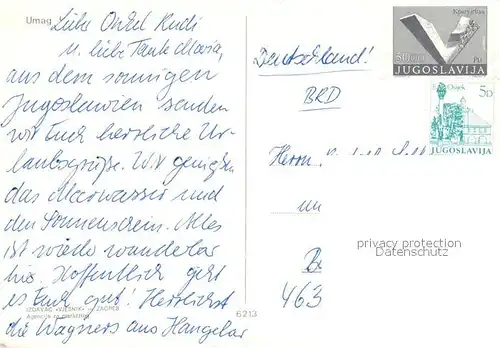 Umag
Liebe Onkel Rudi
u. liebe Tante Maria,
aus dem sonnigen
Jugoslawien senden
wir Euch herrliche Ur-
laubsgrüße. Wir genießen
das Meerwasser und
den Sonnenschein. Alles
ist wieder wunderbar
hier. Hoffentlich geht
es Euch gut! Herzlichst
die Wagners aus Hangelar
IZDAVAČ »VJESNIK« ZAGREB
Agencija za marketing
6213
Deutschland!
BRD
Herrn
un
463
Kragujevac
50.00
JUGOSLAVIJA
Osijek
5D
JUGOSLAVIJA
privacy protection
Datenschutz